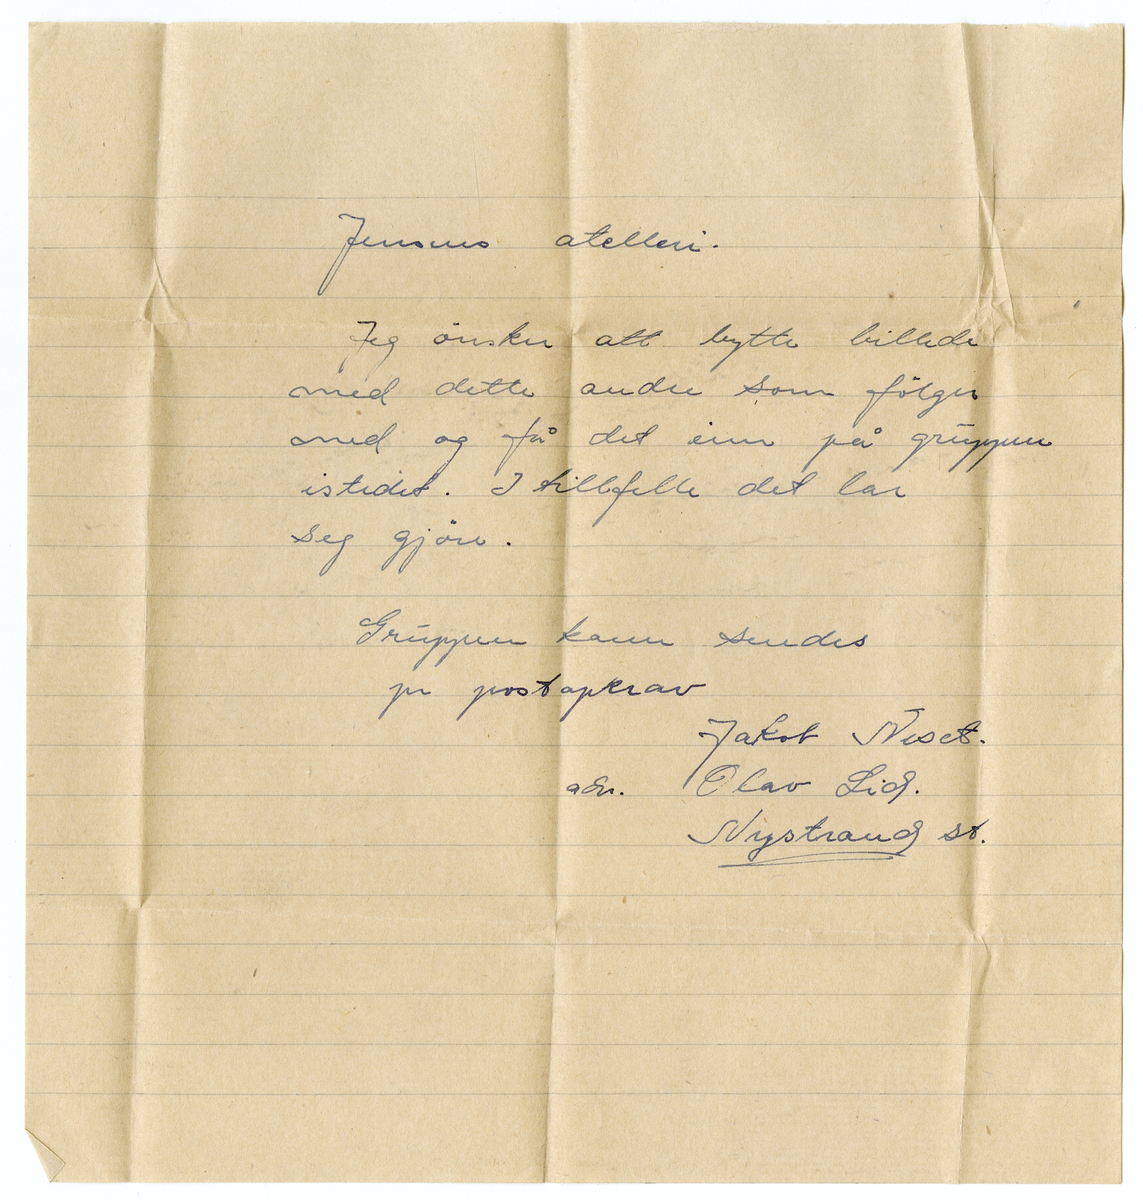 Jensens atelleri.
Jeg önsker att bytte billede
med dette andre som fölger
med og få det inn på gruppen
istedet. I tillfelle det lar
seg gjöre.
Gruppen kann sendes
pr postopkrav
Jakob Neset.
adr. Olav Lid.
Nystrand st.